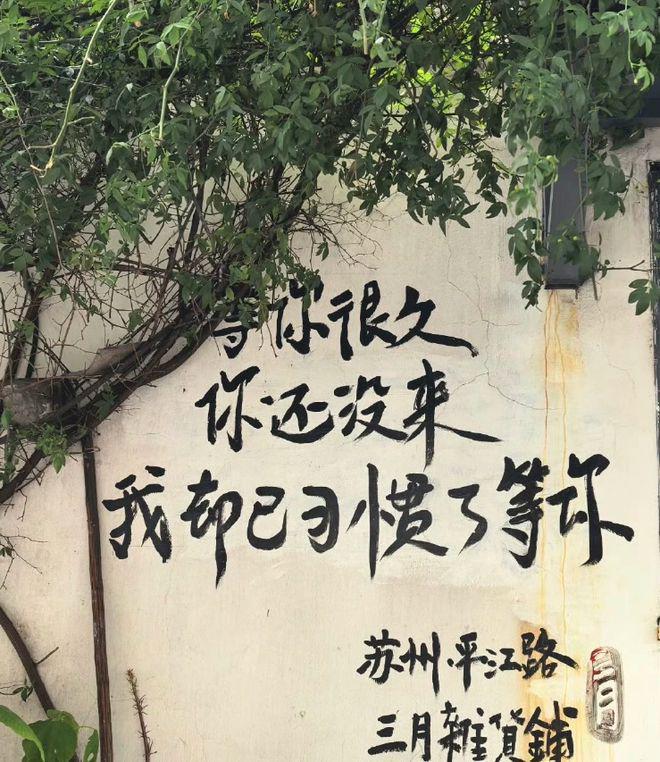 等你很久
你还没来
我却已习惯了等你
苏州平江路
三月
三月雜貨鋪